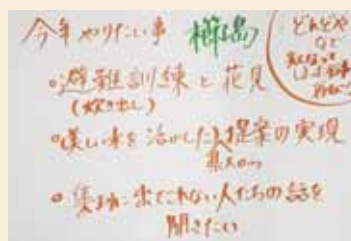 今年やりたい事
どんどや
など
○避難訓練と花見
(炊き出し)
○美しい水を活かした提案の実現
県大の
○集まりに出てこれない人たちの話を
聞きたい